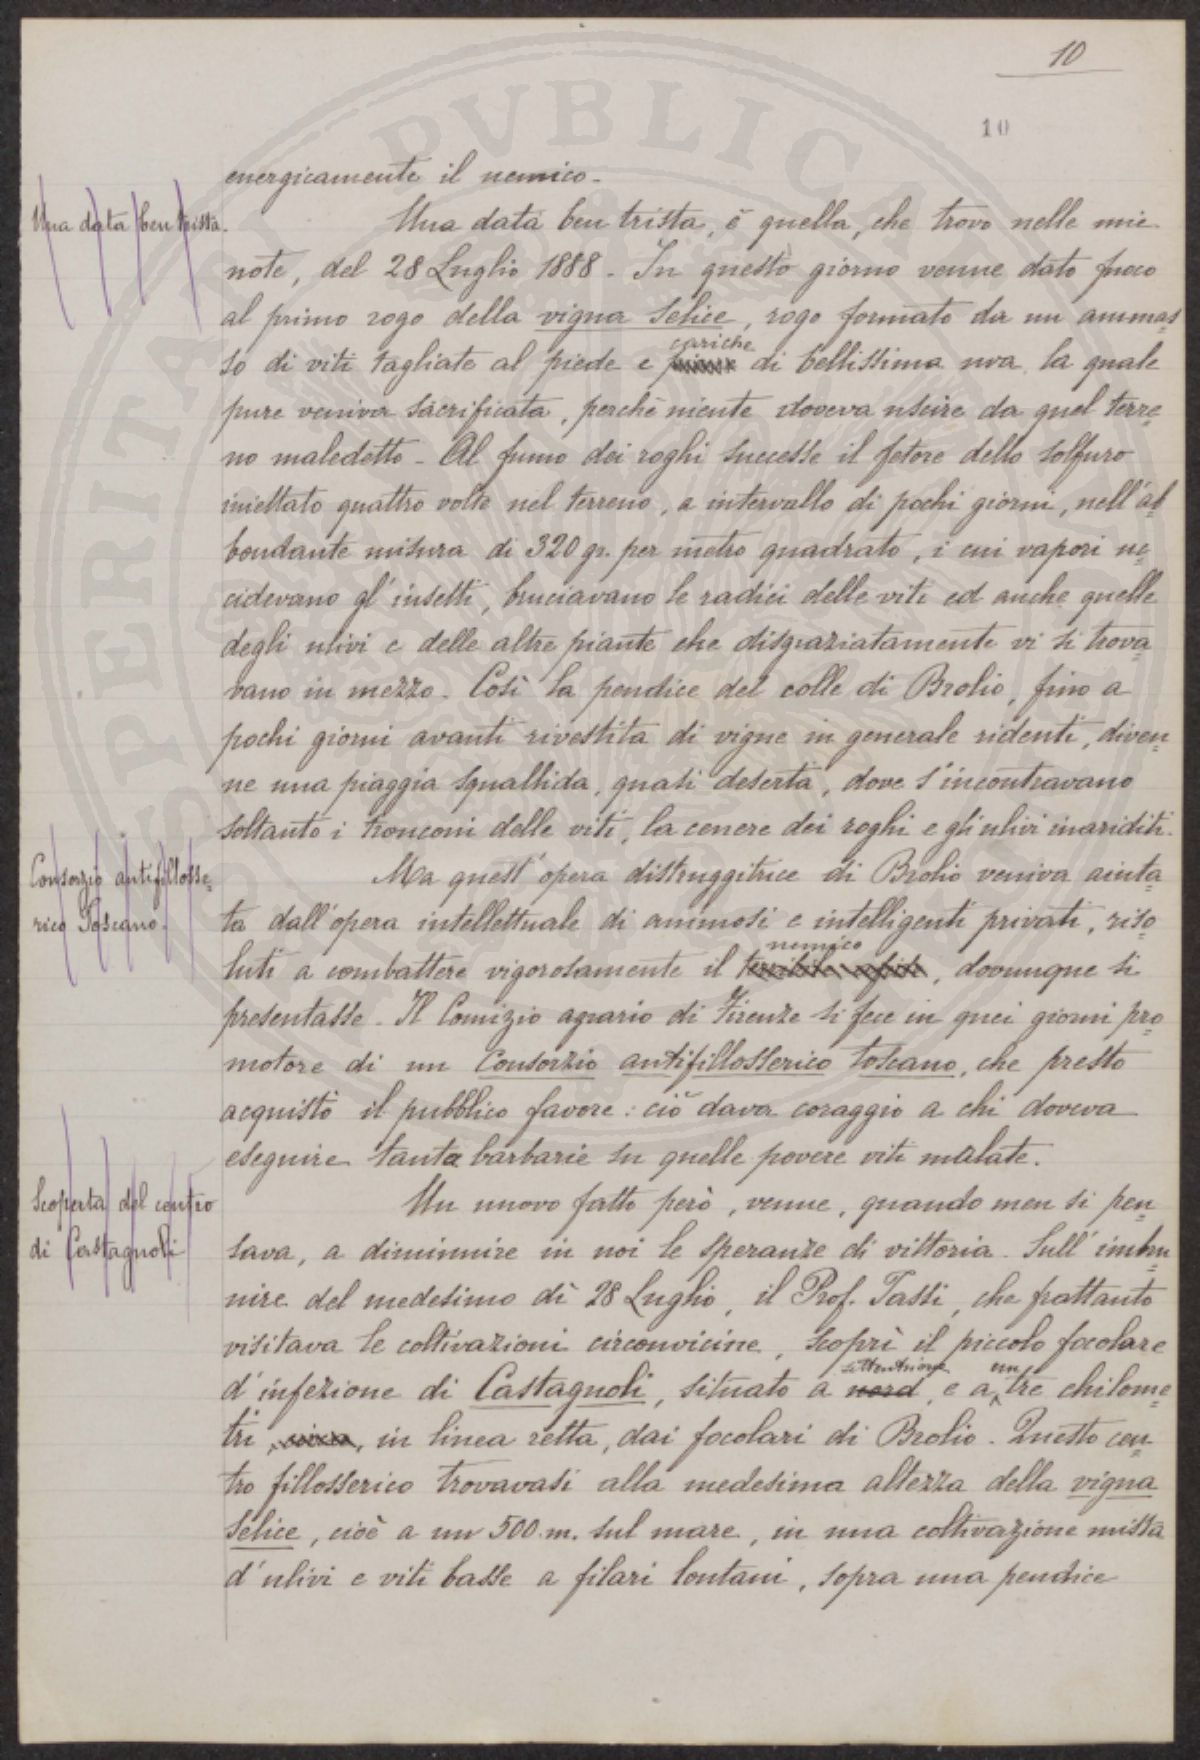 10
10
energicamente il nemico.
Una data ben trista.
Una data ben trista, è quella, che trovo nelle mie
note, del 28 Luglio 1888. In questo giorno venne dato fuoco
al primo rogo della vigna Selice, rogo formato da un ammas=
cariche
so di viti tagliate al piede e di bellissima uva la quale
pure veniva sacrificata, perchè niente doveva uscire da quel terre=
no maledetto. Al fumo dei roghi successe il fetore dello solfuro
iniettato quattro volte nel terreno, a intervallo di pochi giorni, nell'ab=
bondante misura di 320 gr. per metro quadrato, i cui vapori uc=
cidevano gl'insetti, bruciavano le radici delle viti ed anche quelle
degli ulivi e delle altre piante che disgraziatamente vi si trova=
vano in mezzo. Così la pendice del colle di Brolio, fino a
pochi giorni avanti rivestita di vigne in generale ridenti, diven=
ne una piaggia squallida, quasi deserta, dove s'incontravano
soltanto i tronconi delle viti, la cenere dei roghi e gli ulivi inariditi.
Consorzio antifillosse=
rico Toscano.
Ma quest'opera distruggitrice di Brolio veniva aiuta=
ta dall'opera intellettuale di animosi e intelligenti privati, riso=
nemico
luti a combattere vigorosamente il terribile afide, dovunque si
presentasse. Il Comizio agrario di Firenze si fece in quei giorni pro=
motore di un Consorzio antifillosserico toscano, che presto
acquistò il pubblico favore: ciò dava coraggio a chi doveva
eseguire tanta barbarie su quelle povere viti malate.
Scoperta del centro
di Castagnoli
Un nuovo fatto però, venne, quando men si pen=
sava, a diminuire in noi le speranze di vittoria. Sull'imbru=
nire del medesimo dì 28 Luglio, il Prof. Tassi, che frattanto
visitava le coltivazioni circonvicine, scoprì il piccolo focolare
settentrione un
d'infezione di Castagnoli, situato a nord, e a tre chilome=
tri, circa, in linea retta, dai focolari di Brolio. Questo cen=
tro fillosserico trovavasi alla medesima altezza della vigna
Selice, cioè a un 500 m. sul mare, in una coltivazione mista
d'ulivi e viti basse a filari lontani, sopra una pendice
PERITARI PUBLICAE